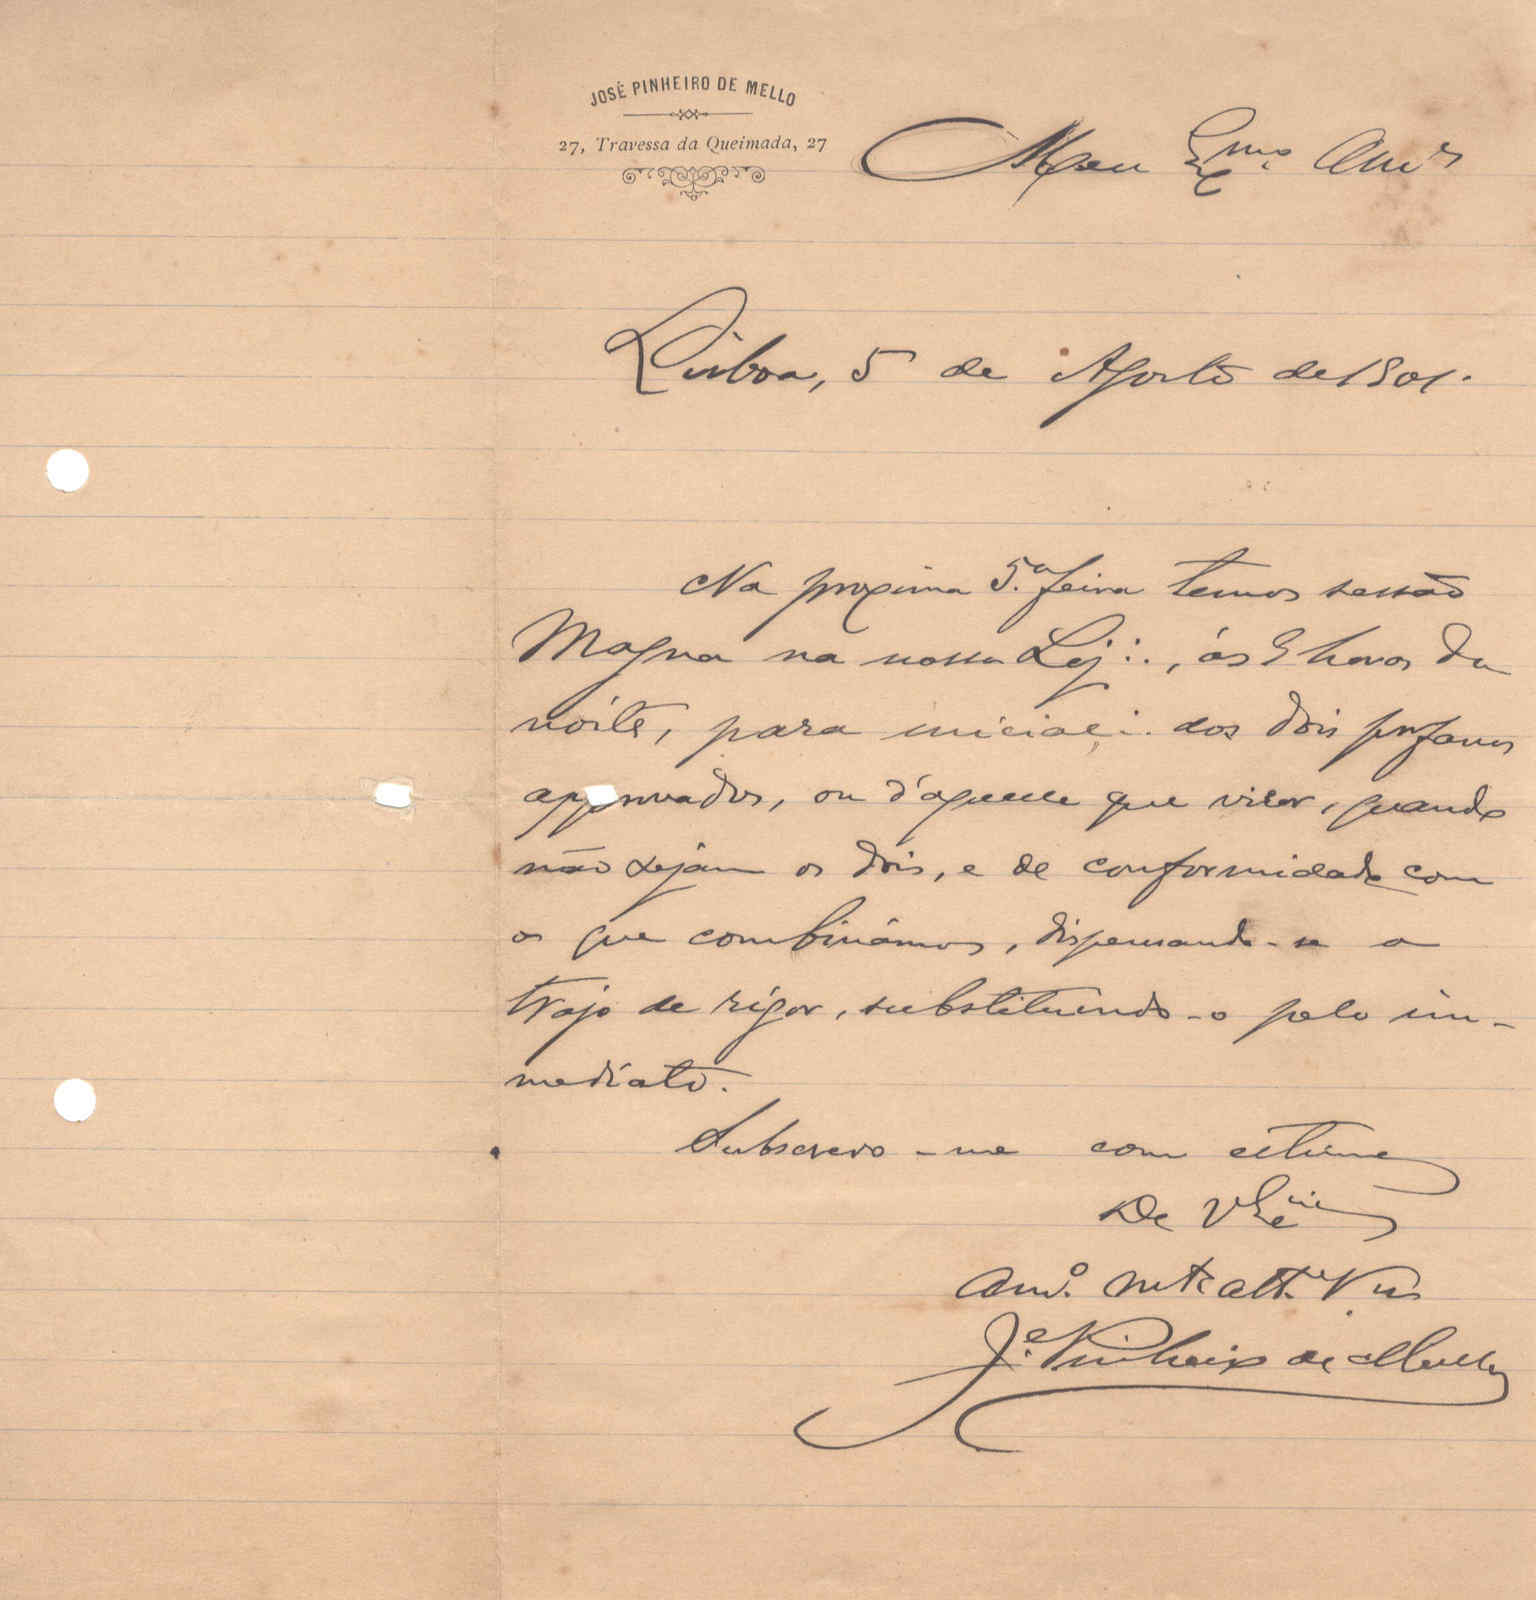 JOSÉ PINHEIRO DE MELLO
27, Travessa da Queimada, 27
Meu Exmo. Amo
Lisboa, 5 de Agosto de 1901.
Na proxima 5.a feira temos sessão
Magna na nossa Loj∴, ás 9 horas da
noite, para iniciaç∴ dos dois profanos
approvados, ou d'aquelle que vier, quando
não sejam os dois, e de conformidade com
o que combinámos, dispensando-se o
trajo de rigor, substituindo-o pelo im-
mediato.
Subscrevo-me com estima
De V Exa
Amo. mto att. Vor
Je. Pinheiro de Mello